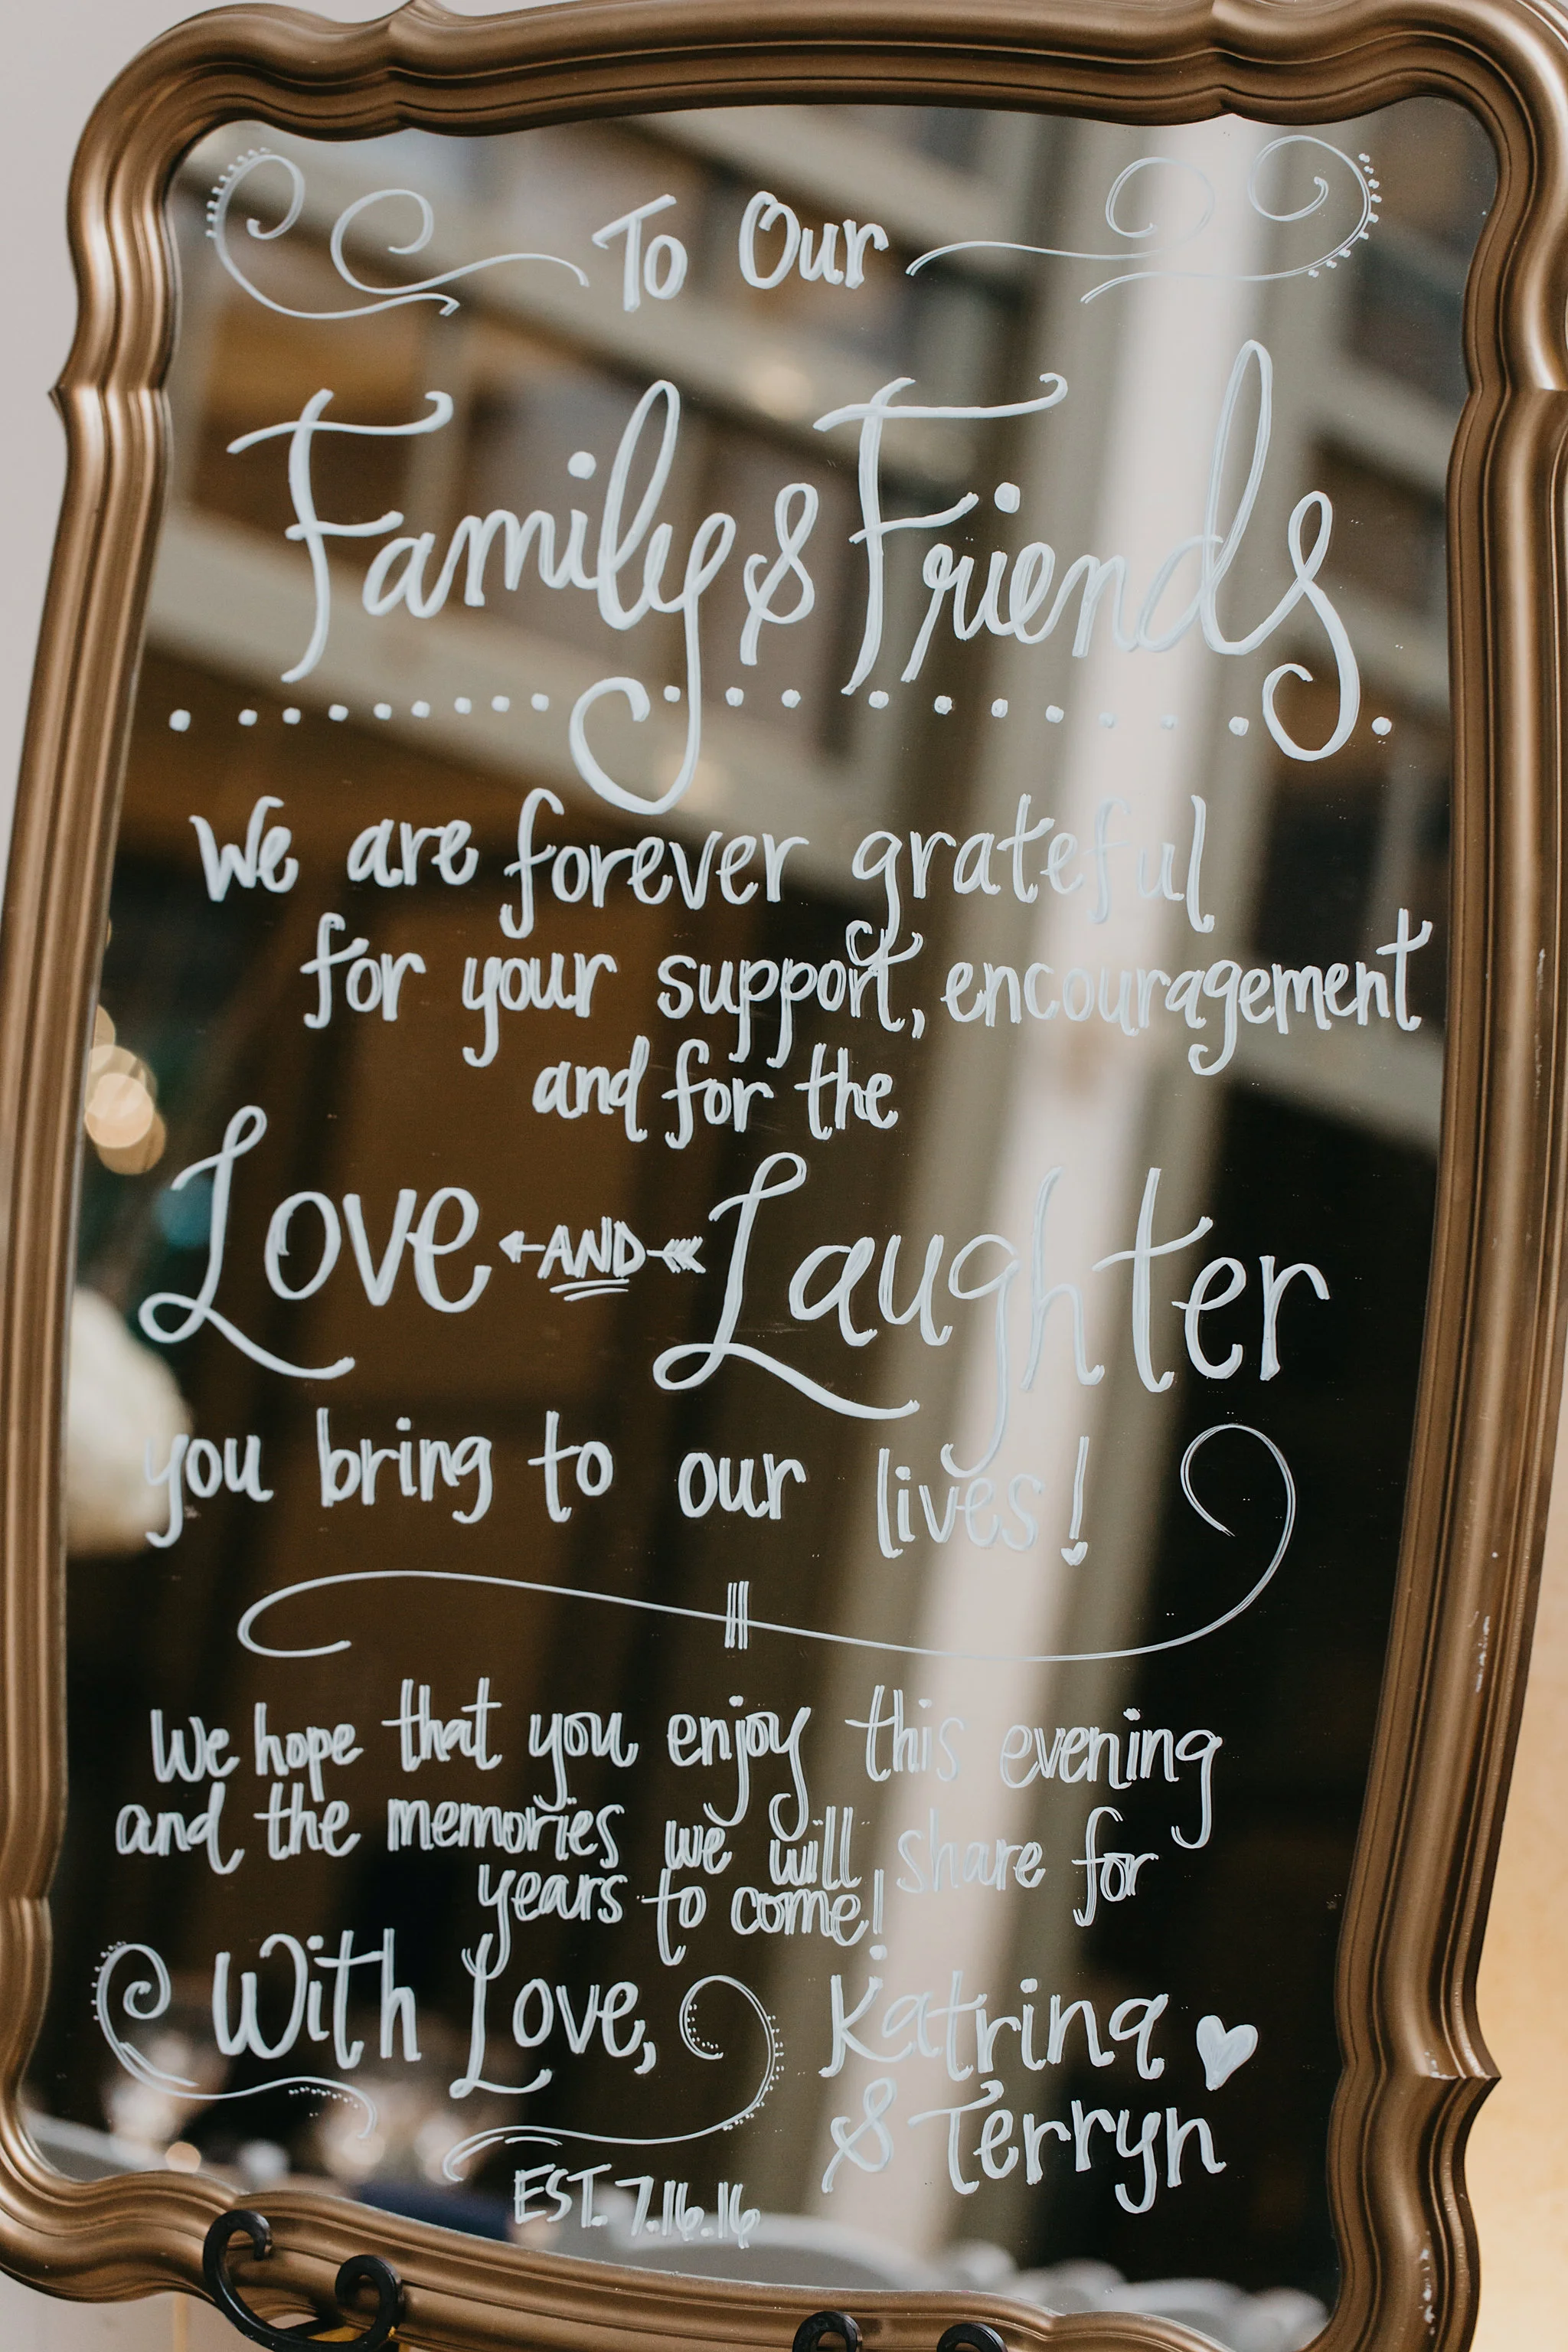 To Our
Family & Friends
We are forever grateful
for your support, encouragement
and for the
Love AND Laughter
you bring to our lives!
We hope that you enjoy this evening
and the memories we will share for
years to come!
With Love, Katrina
& Terryn
EST. 7.16.16